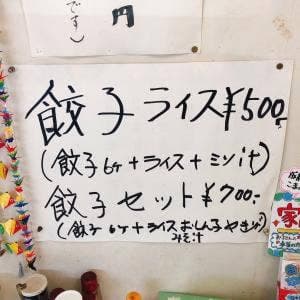 です)
円
餃子ライス¥500.-
(餃子6ヶ+ライス+ミソ汁)
餃子セット¥700.-
(餃子6ヶ+ライスおしんこやきめし
みそ汁)
家